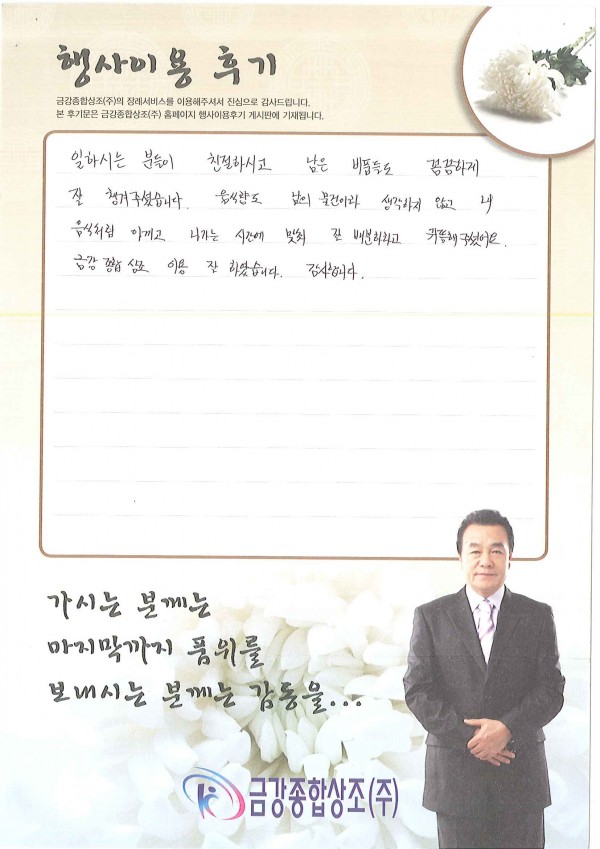 행사이용 후기
금강종합상조(주)의 장례서비스를 이용해주셔서 진심으로 감사드립니다.
본 후기문은 금강종합상조(주) 홈페이지 행사이용후기 게시판에 기재됩니다.
일하시는 분들이 친절하시고 남은 비품들도 꼼꼼하게
잘 챙겨주셨습니다. 음식량도 남의 물건이라 생각하지 않고 내
음식처럼 아끼고 나가는 시간에 맞춰 잘 배분하라고 귀뜸해주셨어요.
금강 종합 상조 이용 잘 하였습니다. 감사합니다.
가시는 분께는
마지막까지 품위를
보내시는 분께는 감동을...
금강종합상조(주)